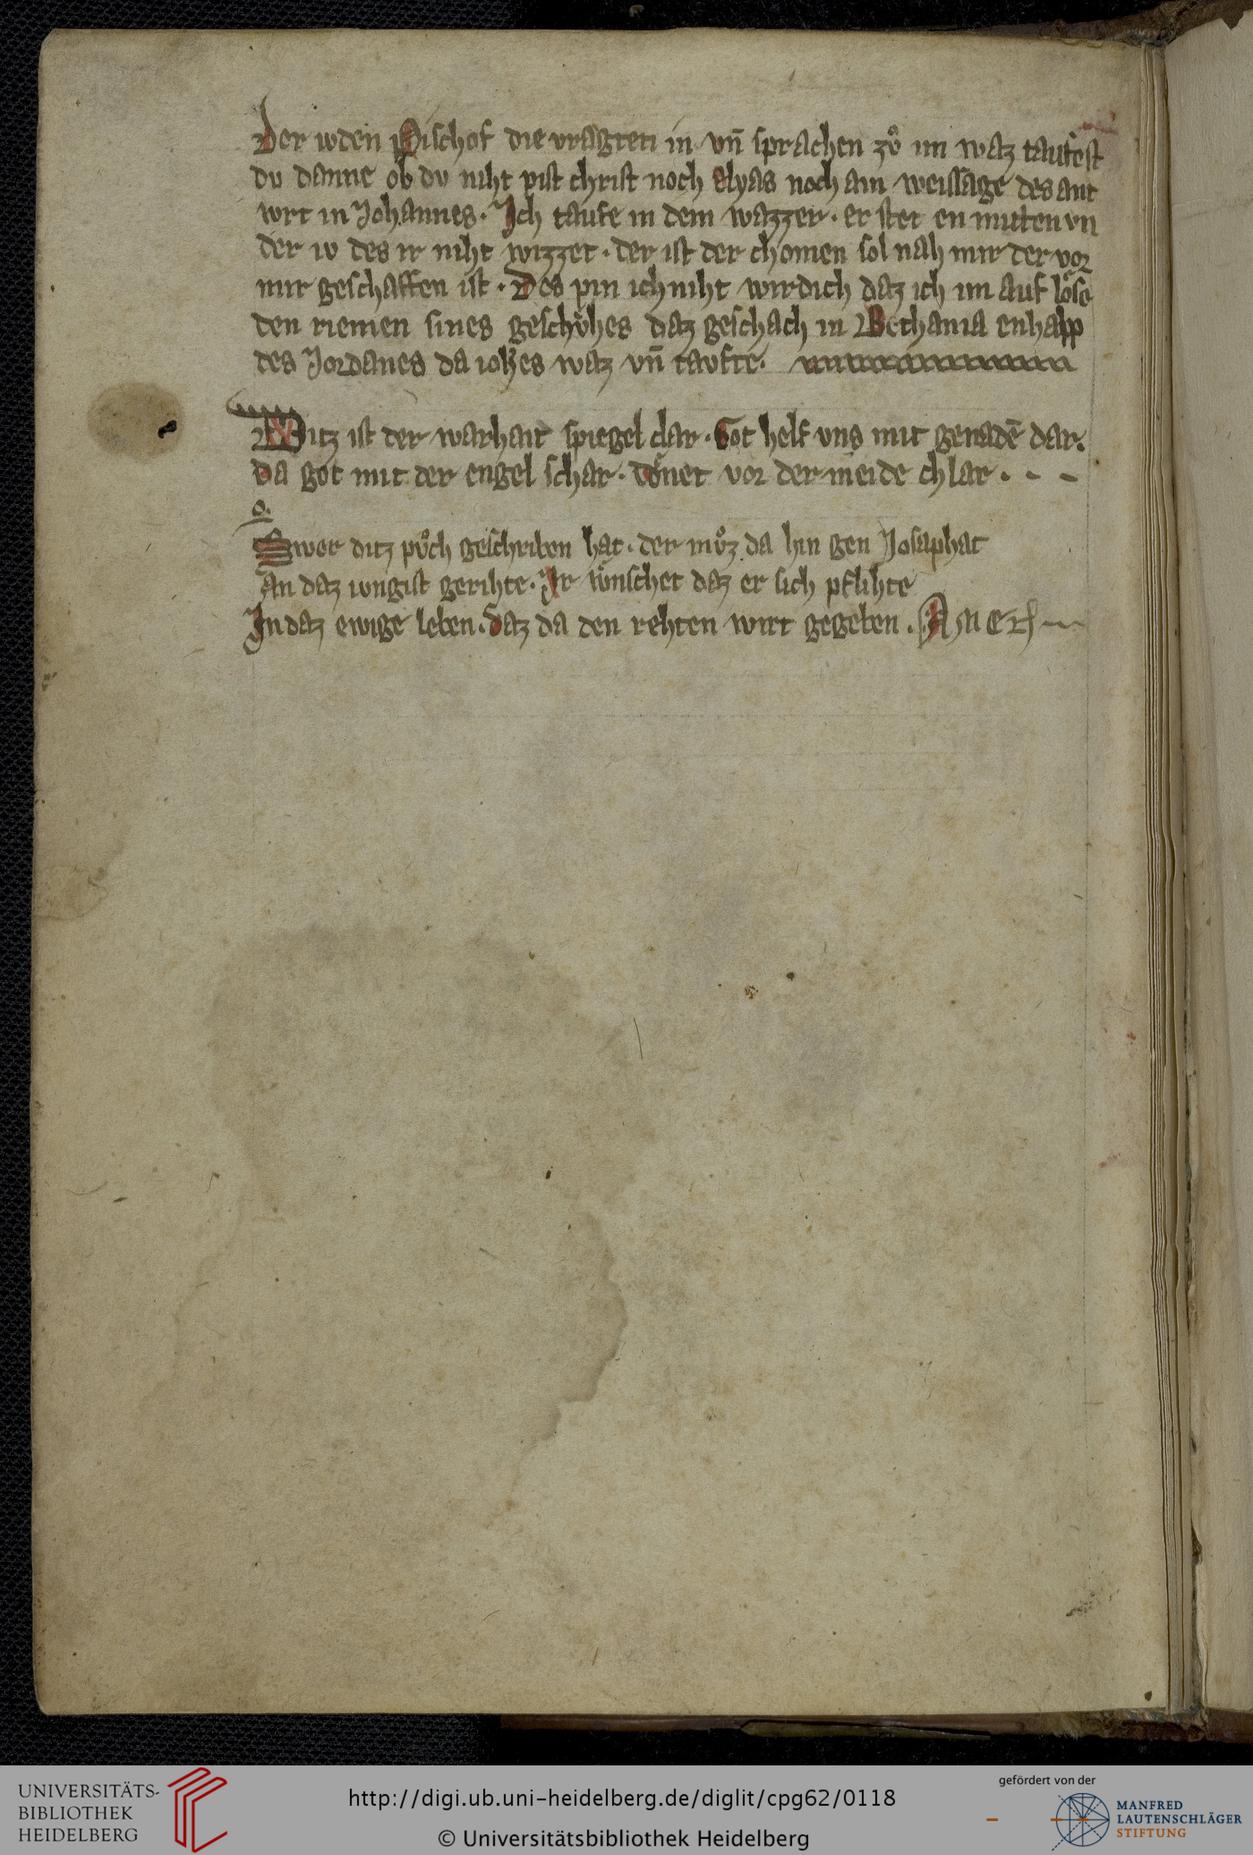 Der ivden Pischof die vragten in vn̄ sprachen zuͦ im waz taufest
du danne ob du niht pist christ noch elyas noch ain weissage des ant
wrt in Johannes. Ich taufe in dem wazzer. er stet en mitten vn
der iv des ir niht wizzet. der ist der chomen sol nah mir der vor
mir geschaffen ist. Des pin ich niht wirdich daz ich im auf loͤse
den riemen sines geschuͤhes daz geschach in Bethania enhalp
des Jordanes da ioh̄es waz vn̄ taufte.
Ditz ist der warhait spiegel clar. Got helf vns mit genadē dar.
da got mit der engel schar. doͤnet vor der meide chlar. - -
Swer ditz puͦch geschriben hat. der muͦz da hin gen Josaphat
An daz iungist gerihte. Ir wͤnschet daz er sich pflihte
In daz ewige leben. Daz da den rehten wirt gegeben. AMEN
UNIVERSITÄTS-
BIBLIOTHEK
HEIDELBERG
http://digi.ub.uni-heidelberg.de/diglit/cpg62/0118
© Universitätsbibliothek Heidelberg
gefördert von der
MANFRED
LAUTENSCHLÄGER
STIFTUNG